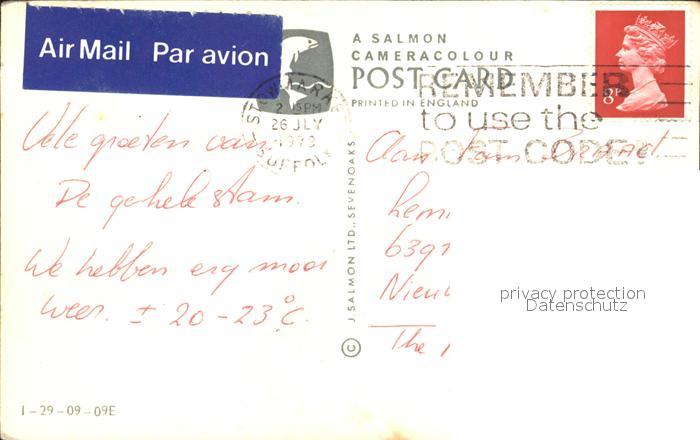 Air Mail Par avion
A SALMON
CAMERACOLOUR
POST CARD
PRINTED IN ENGLAND
REMEMBER
to use the
POST CODE
8P
STOWMARKET
2. 15 PM
26 JLY
1973
SUFFOLK
Vele groeten van
De gehele stam.
We hebben erg mooi
weer. ± 20 - 23°C.
© J. SALMON LTD., SEVENOAKS
Aan Fam
6391
Nieu
The
privacy protection
Datenschutz
1-29-09-09E